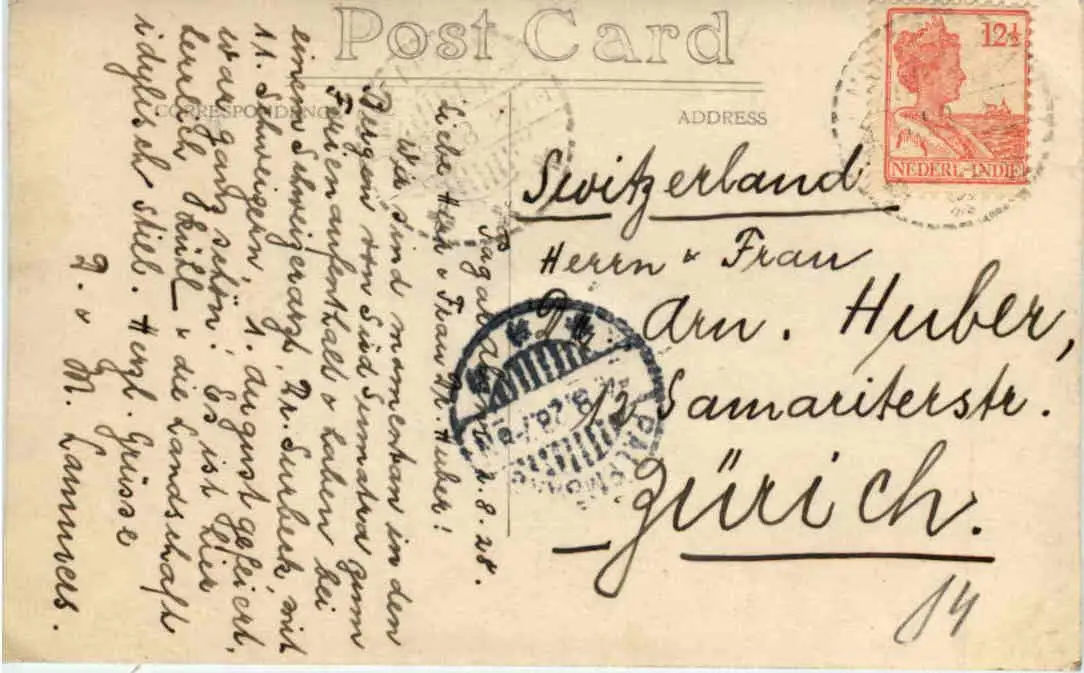 Post Card
CORRESPONDENCE
ADDRESS
12½
NEDERL-INDIE
Switzerland
Herrn & Frau
Dr. Arn. Huber,
12 Samariterstr.
Zürich.
14
PALEMBANG
8.28.7-8
Pagaralam 2.8.28.
Liebe Herr & Frau Dr. Huber!
Wir sind momentan in den
Bergen von Süd Sumatra zum
Ferienaufenthalt & haben bei
einem Schweizerarzt, Dr. Surbeck, mit
11 Schweizern, 1. August gefeiert,
war ganz schön! Es ist hier
herrlich kühl & die Landschaft
idyllisch still. Herzl. Grüsse
& M. Lanners.